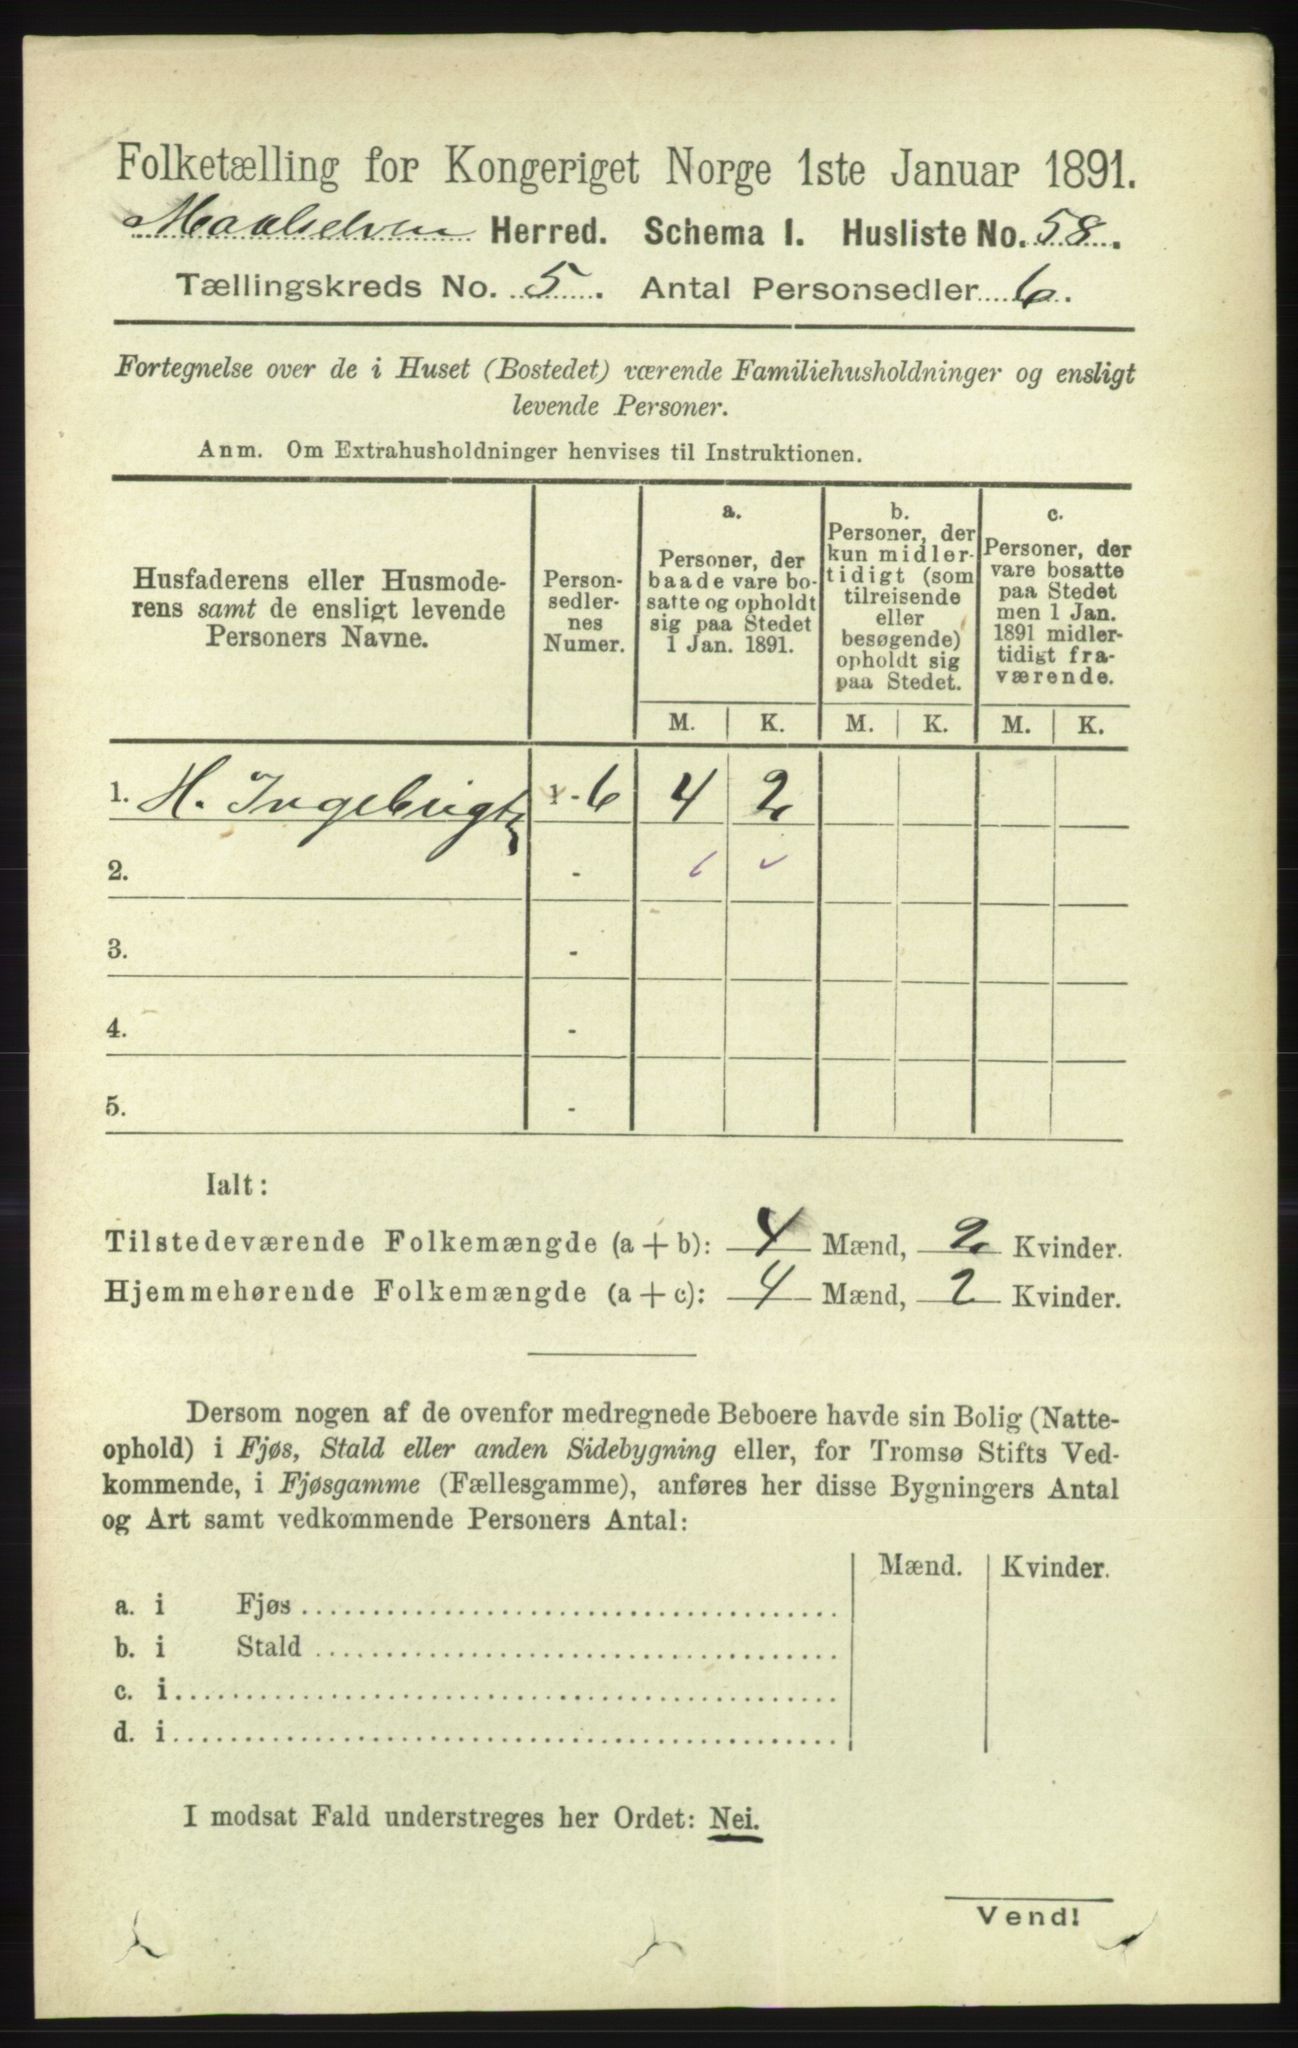 Folketælling for Kongeriget Norge 1ste Januar 1891.
Maalselven Herred. Schema I. Husliste No. 58.
Tællingskreds No. 5. Antal Personsedler 6.
Fortegnelse over de i Huset (Bostedet) værende Familiehusholdninger og ensligt
levende Personer.
Anm. Om Extrahusholdninger henvises til Instruktionen.
Husfaderens eller Husmode-
rens samt de ensligt levende
Personers Navne.
Person-
sedler-
nes
Numer.
a.
Personer, der
baade vare bo-
satte og opholdt
sig paa Stedet
1 Jan. 1891.
b.
Personer, der
kun midler-
tidigt (som
tilreisende
eller
besøgende)
opholdt sig
paa Stedet.
c.
Personer, der
vare bosatte
paa Stedet
men 1 Jan.
1891 midler-
tidigt fra-
værende.
M. K. M. K. M. K.
1. H. Ingebrigts 1-6 4 2
2. -
3. -
4. -
5. -
Ialt:
Tilstedeværende Folkemængde (a+b): 4 Mænd, 2 Kvinder.
Hjemmehørende Folkemængde (a+c): 4 Mænd, 2 Kvinder.
Dersom nogen af de ovenfor medregnede Beboere havde sin Bolig (Natte-
ophold) i Fjøs, Stald eller anden Sidebygning eller, for Tromsø Stifts Ved-
kommende, i Fjøsgamme (Fællesgamme), anføres her disse Bygningers Antal
og Art samt vedkommende Personers Antal:
Mænd. Kvinder.
a. i Fjøs
b. i Stald
c. i
d. i
I modsat Fald understreges her Ordet: Nei.
Vend!